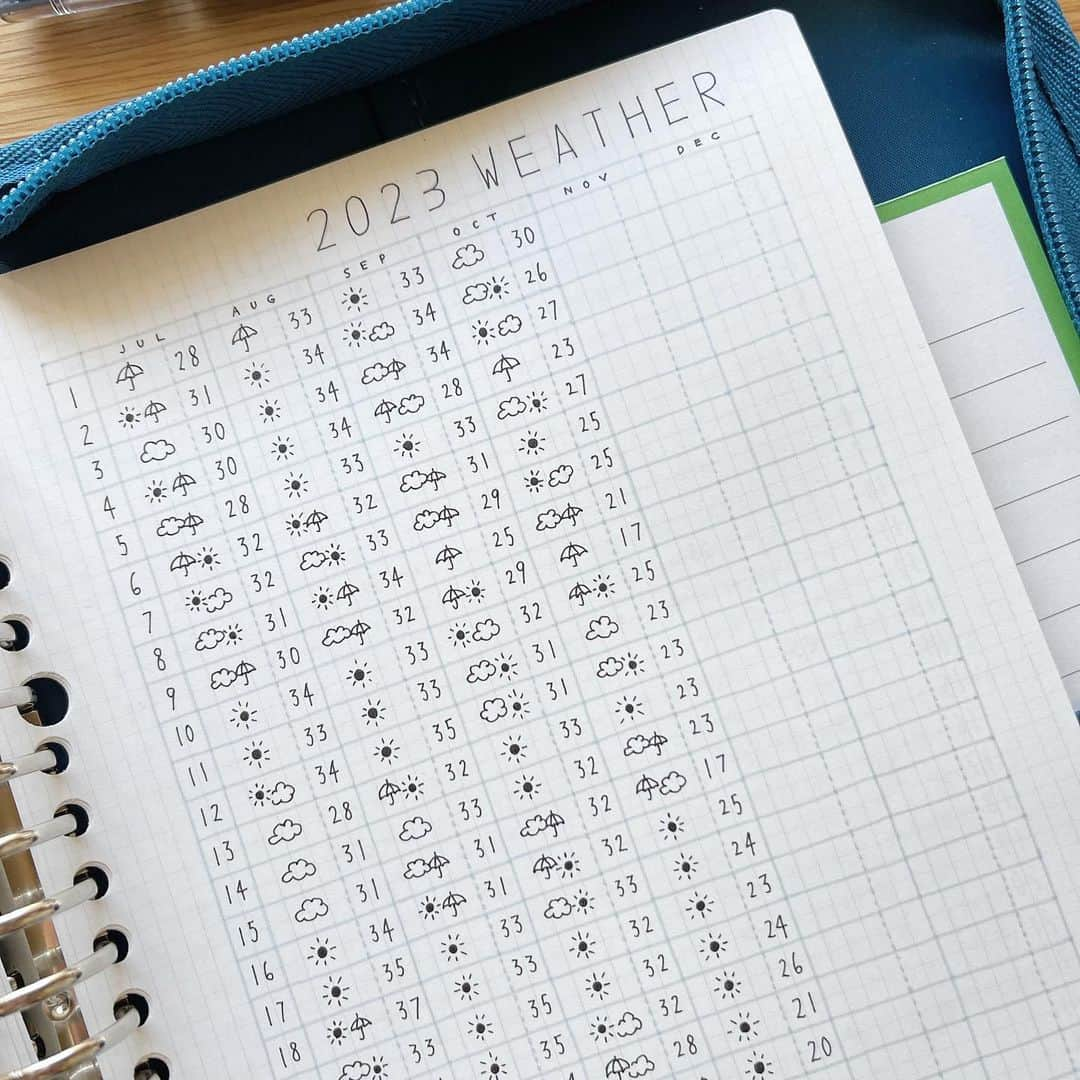 2023 WEATHER
JUL AUG SEP OCT NOV DEC
1 28 33 33 30
2 31 34 34 26
3 30 34 34 27
4 30 34 28 23
5 28 33 33 27
6 32 32 31 25
7 32 33 29 25
8 31 34 25 21
9 30 32 29 17
10 34 33 32 25
11 33 33 31 23
12 34 35 31 23
13 28 32 33 23
14 31 33 32 23
15 31 31 32 17
16 34 31 32 25
17 35 33 33 24
18 37 33 32 23
33 35 32 24
35 32 26
28 21
20